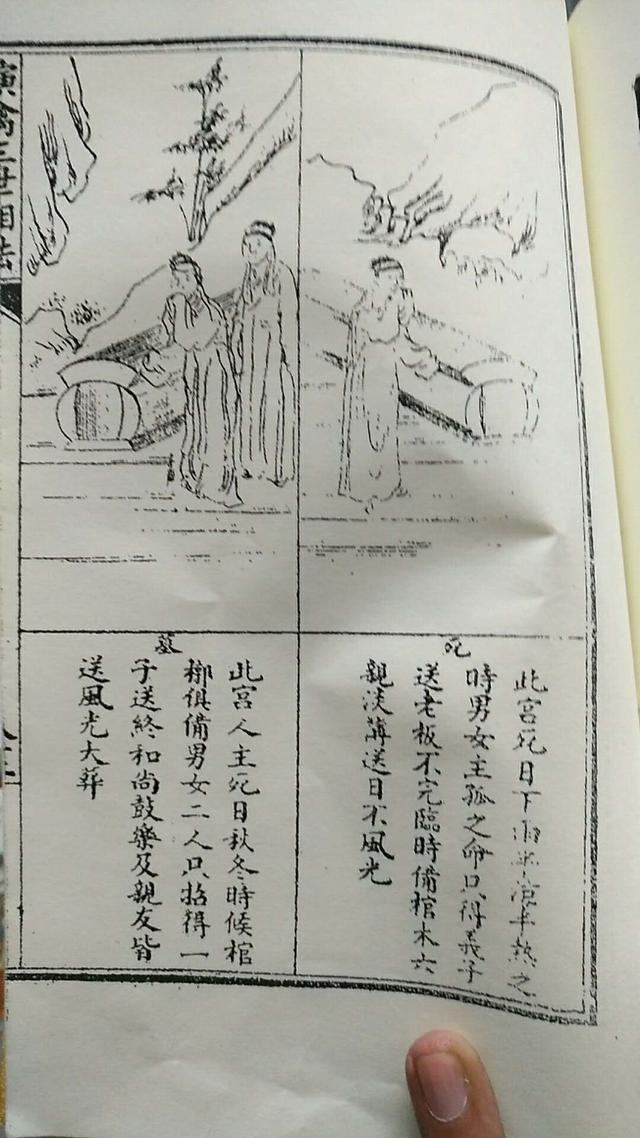 死
此宮死日下雨半濕半熱之
時男女主孤之命只得義子
送老板不完臨時備棺木六
親淡薄送日不風光
墓
此宮人主死日秋冬時候棺
槨俱備男女二人只招得一
子送終和尚鼓樂及親友皆
送風光大葬
演禽三世相法